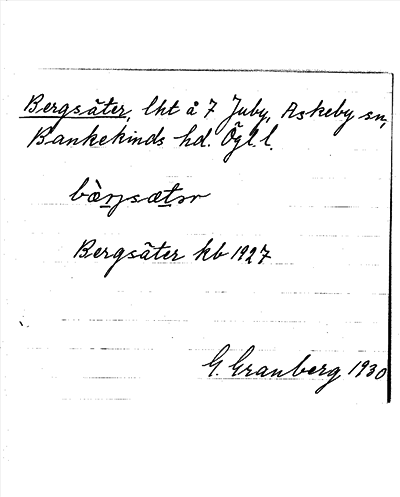 Bergsäter, lht å 7 Juby, Askeby sn,
Bankekinds hd. Ögl l.
bæ̀ŋsætər
Bergsäter kb 1927
G. Granberg 1930